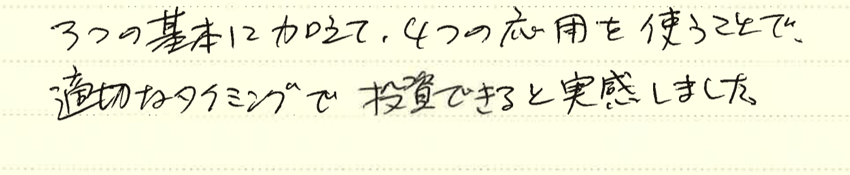 3つの基本に加えて、4つの応用を使うことで、
適切なタイミングで投資できると実感しました。